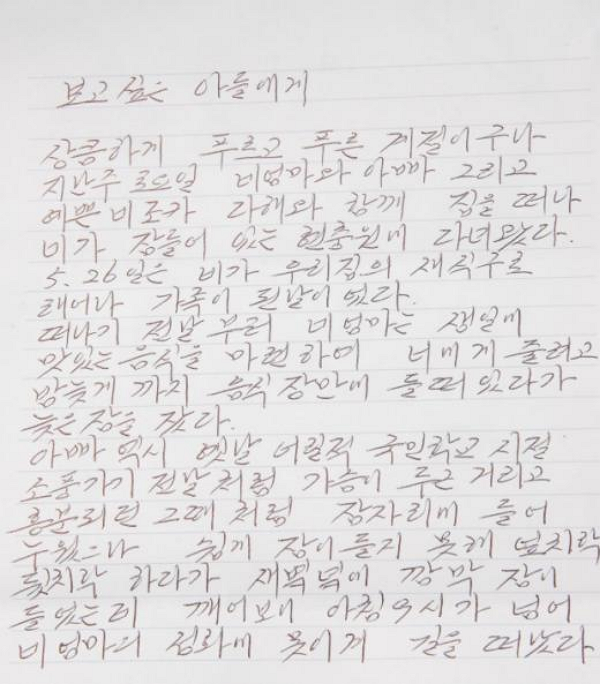 보고 싶은 아들에게
상큼하게 푸르고 푸른 계절이구나
지난주 토요일 네엄마와 아빠 그리고
예쁜 네조카 다해와 함께 집을 떠나
네가 잠들어 있는 현충원에 다녀왔다.
5.26일은 네가 우리집의 새식구로
태어나 가족이 된날이였다.
떠나기 전날 부터 네엄마는 생일에
맛있는 음식을 마련하여 너에게 줄려고
밤늦게 까지 음식장만에 들떠있다가
늦은잠을 잤다.
아빠 역시 옛날 어릴적 국민학교 시절
소풍가기 전날처럼 가슴이 두근거리고
흥분되던 그때 처럼 잠자리에 들어
누웠으나 쉽게 잠이들지 못해 엎치락
뒷치락 하다가 새벽녘에 깜박 잠이
들었는데 깨어보니 아침9시가 넘어
네엄마의 성화에 못이게 길을 떠났다